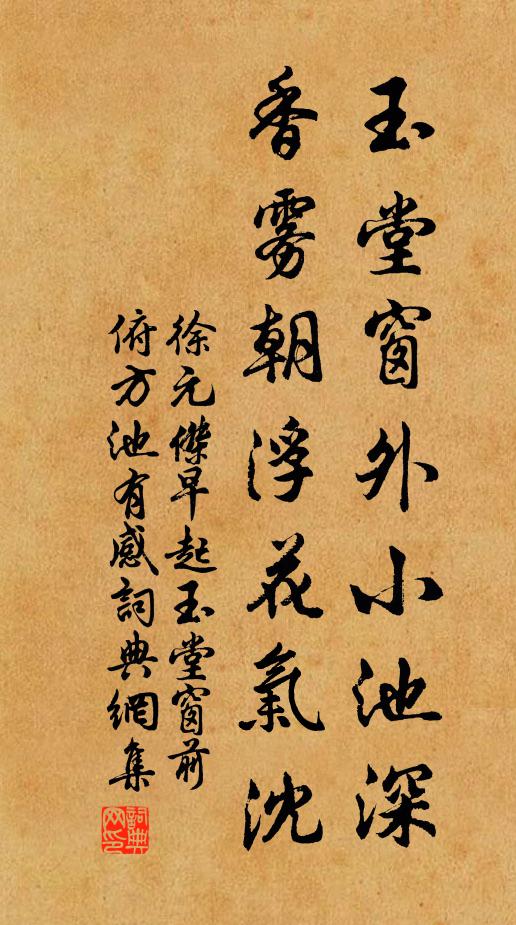 玉堂窗外小池深
香雾朝浮花氣沈
徐元傑早起玉堂窗前
俯方池有感詞典網集
詞典网印